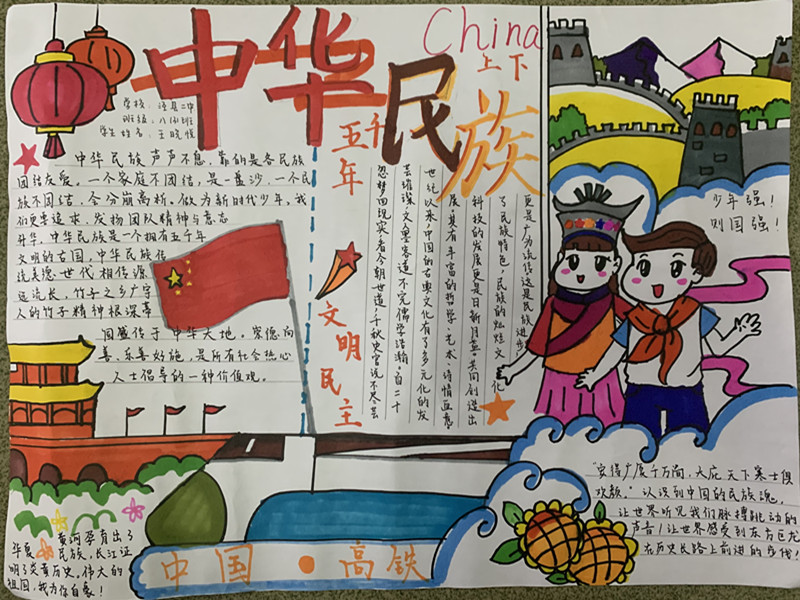 中华民族
China
上下
五千
年
学校：泾县二中
班级：八（9）班
学生姓名：王晓
中华民族声声不息，靠的是各民族
团结友爱。一个家庭不团结，是一盘沙，一个民
族不团结，会分崩离析，做为新时代少年，我
们更需追求，发扬团队精神与意志
升华，中华民族是一个拥有五千年
文明的古国，中华民族传
统美德世代相传源
远流长，竹子之乡广宇
人的竹子精神根深蒂
固盛传于中华大地。崇德向
善、乐善好施，是所有社会热心
人士倡导的一种价值观。
文明民主
更是广为流传这是民族进步
了民族特色，民族的灿烂文化
科技的发展更是日新月异。共同创造出
展，具有丰富的哲学、艺术、诗情画意
世纪以来，中国的古典文化有了多元化的发
芸璀璨，文人墨客道不完儒学浩瀚。自二十
忽梦回现实，看今朝世道，千秋史官说不尽芸
少年强！
则国强！
"安得广厦千万间，大庇天下寒士俱
欢颜。"以识到中国的民族魂，
让世界听见我们脉搏跳动的
声音！让世界感受到东方巨龙
在历史长路上前进的步伐！
黄河孕育出了
华夏民族，长江证
明了炎黄历史。伟大的
祖国，我为你自豪！
中国·高铁